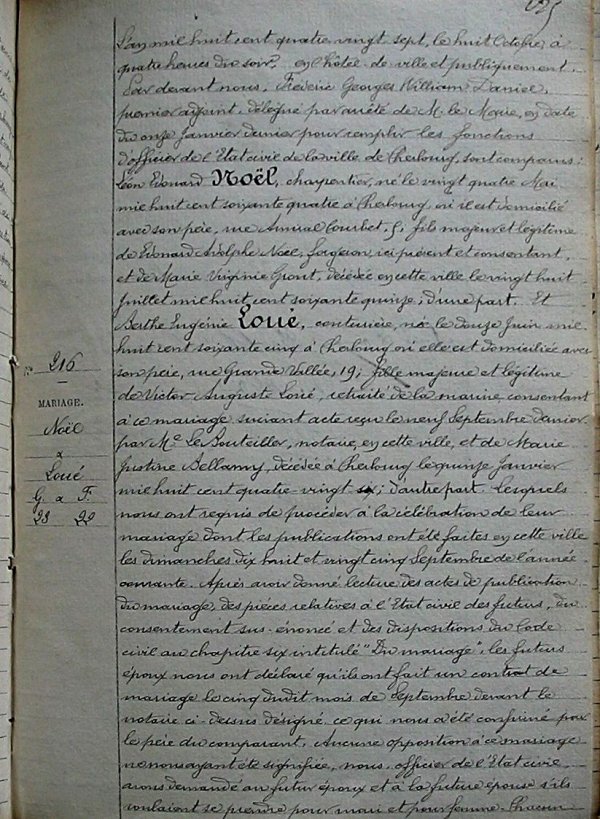 L'an mil huit cent quatre vingt sept, le huit Octobre, à
quatre heures du soir, en l'hôtel de ville et publiquement.
Par devant nous, Frédéric Georges William Daniel,
premier adjoint, délégué par arrêté de M. le Maire, en date
du onze Janvier dernier pour remplir les fonctions
d'officier de l'Etat civil de la ville de Cherbourg, sont comparus:
Léon Edouard Noël, charpentier, né le vingt quatre Mai
mil huit cent soixante quatre à Cherbourg où il est domicilié
avec son père, rue Amiral Courbet, 5, fils majeur et légitime
de Edouard Adolphe Noël, forgeron, ici présent et consentant,
et de Marie Virginie Gront, décédée en cette ville le vingt huit
Juillet mil huit cent soixante quinze, d'une part. Et
Berthe Eugénie Loué, couturière, née le douze Juin mil
huit cent soixante cinq à Cherbourg où elle est domiciliée avec
son père, rue Grande Vallée, 19, fille majeure et légitime
de Victor Auguste Loué, retraité de la marine, consentant
à ce mariage suivant acte reçu le neuf Septembre dernier
par Me Le Bouteiller, notaire, en cette ville, et de Marie
Justine Bellamy, décédée à Cherbourg le quinze Janvier
mil huit cent quatre-vingt six; d'autre part. Lesquels
nous ont requis de procéder à la célébration de leur
mariage dont les publications ont été faites en cette ville
les dimanches dix huit et vingt cinq Septembre de l'année
courante. Après avoir donné lecture des actes de publication
du mariage, des pièces relatives à l'Etat civil des futurs, du
consentement sus-énoncé et des dispositions du Code
civil au chapitre six intitulé "Du mariage", les futurs
époux nous ont déclaré qu'ils ont fait un contrat de
mariage le cinq dudit mois de Septembre devant le
notaire ci-dessus désigné ce qui nous a été confirmé par
le père du comparant. Aucune opposition à ce mariage
ne nous ayant été signifiée, nous, officier de l'Etat civil,
avons demandé au futur époux et à la future épouse s'ils
voulaient se prendre pour mari et pour femme. Chacun
No 216
MARIAGE.
Noël
a
Loué
G. a F.
23 22